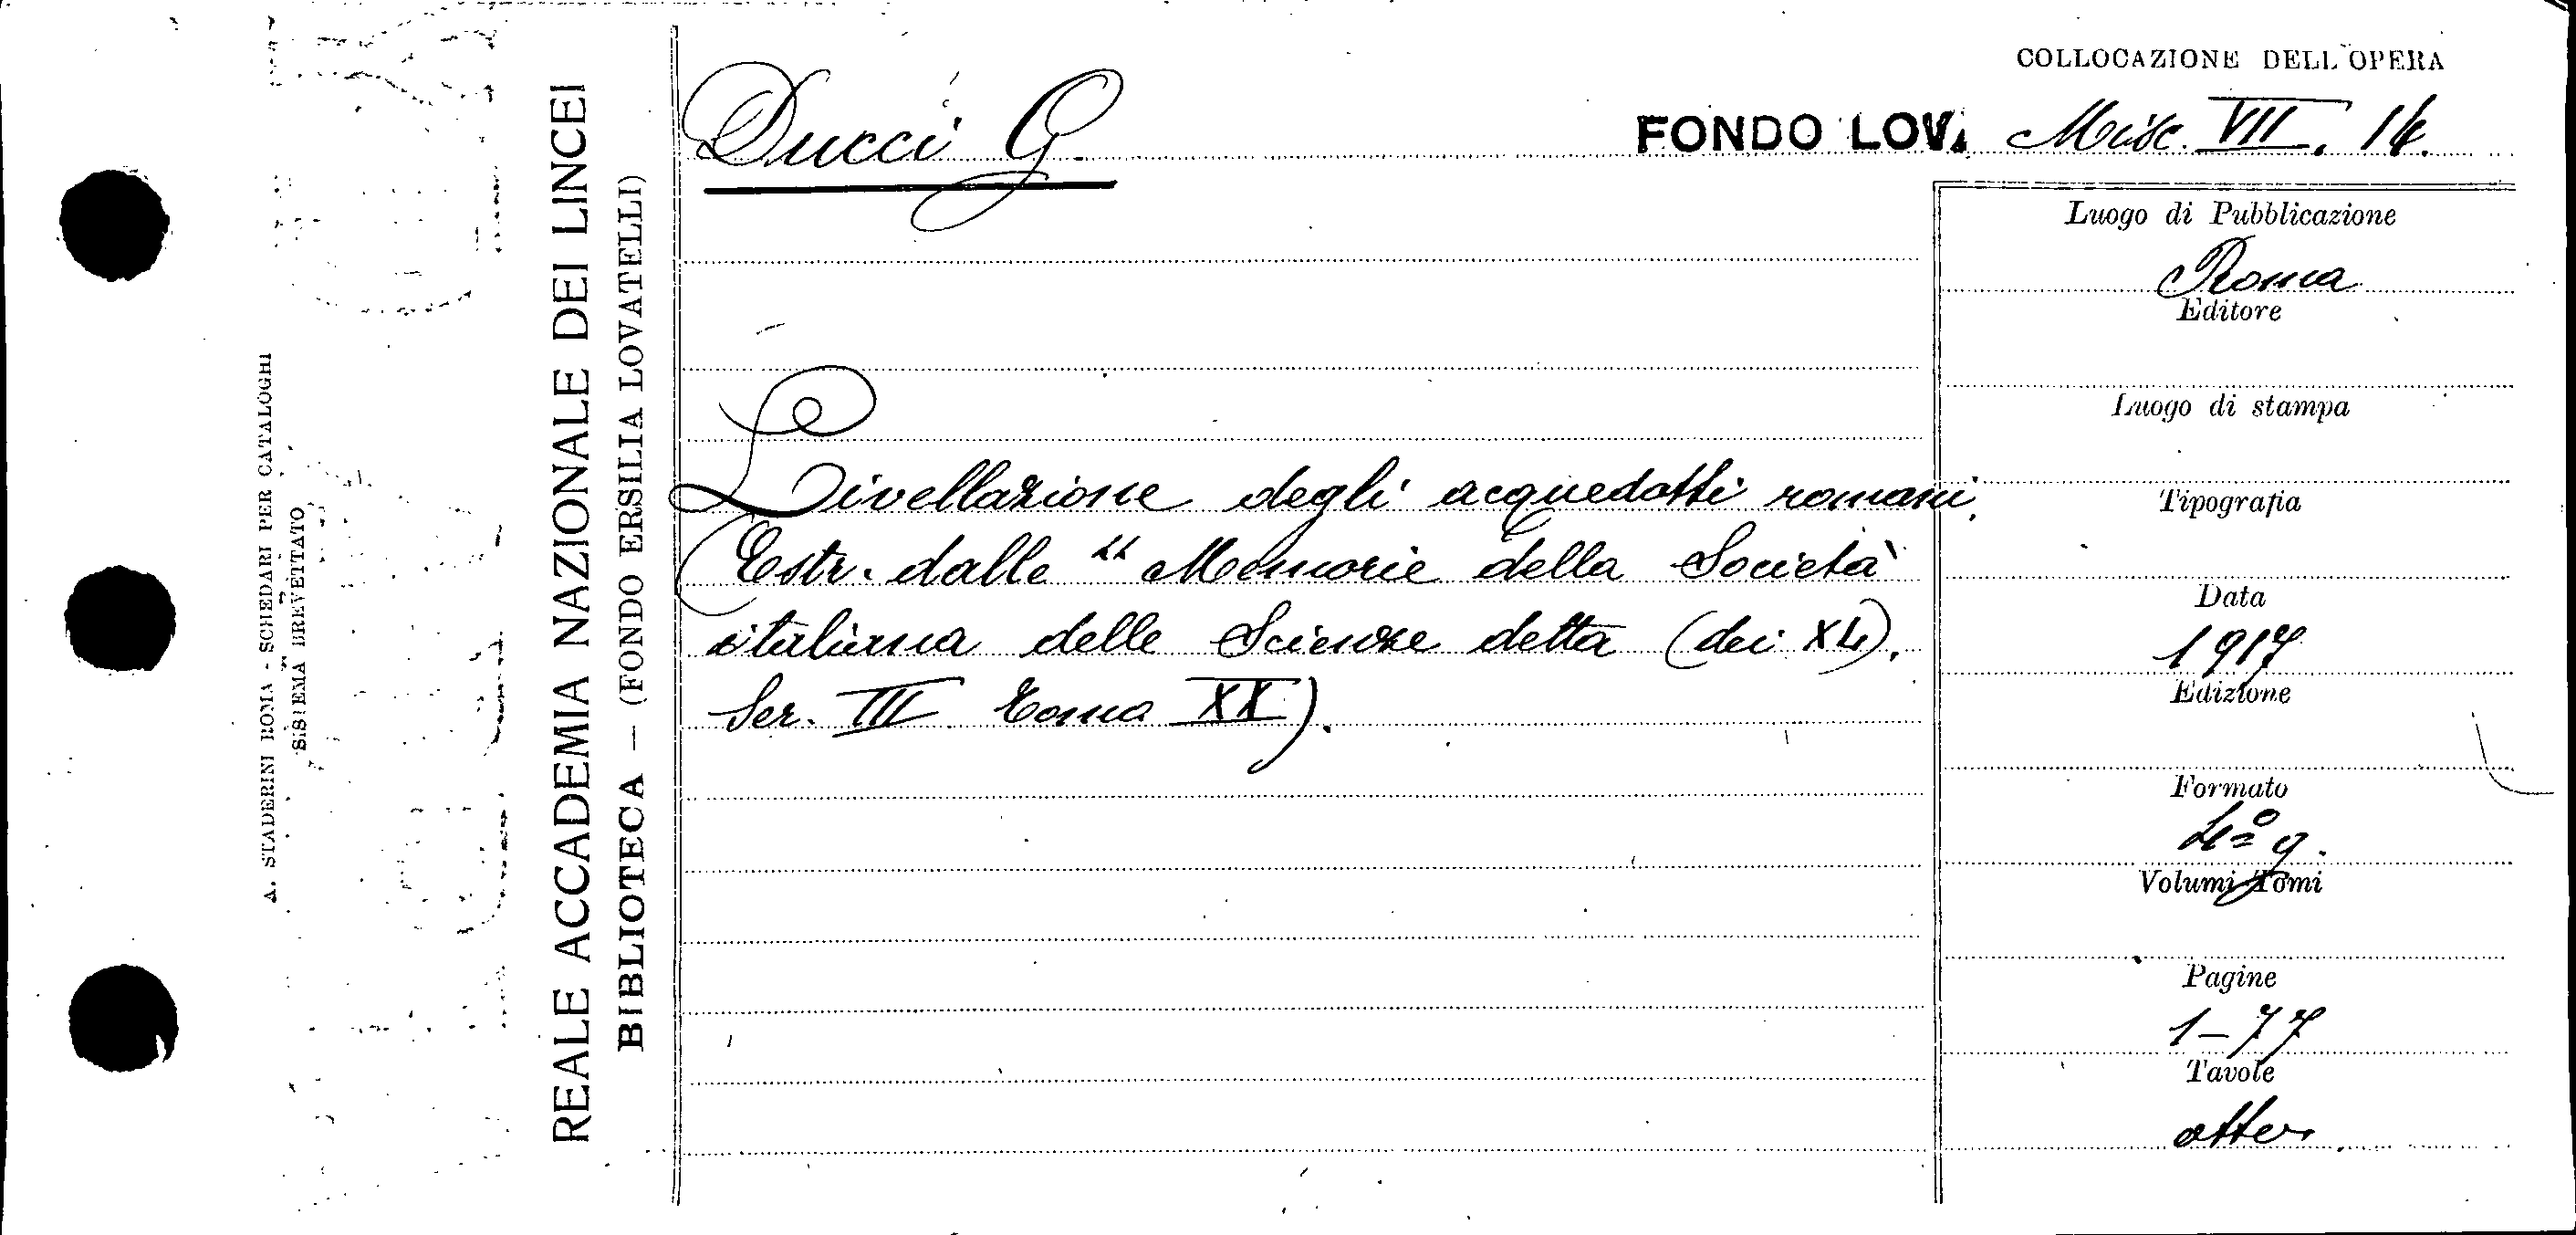 COLLOCAZIONE DELL'OPERA
Ducci G.
FONDO LOV. Misc. VII. 14.
Livellazione degli acquedotti romani.
(Estr. dalle "Memorie della Società
italiana delle Scienze detta (dei XL).
Ser. III Tomo XX).
Luogo di Pubblicazione
Roma
Editore
Luogo di stampa
Tipografia
Data
1917
Edizione
Formato
4º g.
Volumi-Tomi
Pagine
1-77
Tavole
otto
REALE ACCADEMIA NAZIONALE DEI LINCEI
BIBLIOTECA — (FONDO ERSILIA LOVATELLI)
A. STADERINI ROMA - SCHEDARI PER CATALOGHI
SISTEMA BREVETTATO